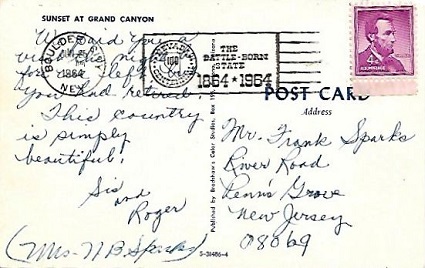 SUNSET AT GRAND CANYON
BOULDER CITY
1964
NEV.
NEVADA
100
THE
BATTLE-BORN
STATE
1864 ★ 1964
4¢
We said you a
for left
you and retired.
This country
is simply
beautiful!
Sis
and
Roger
(Mrs. N B Sparks)
POST CARD
Address
Mr. Frank Sparks
River Road
Penns Grove
New Jersey
08069
Published by Bradshaw's Color Studios, Box 19
S-31486-4